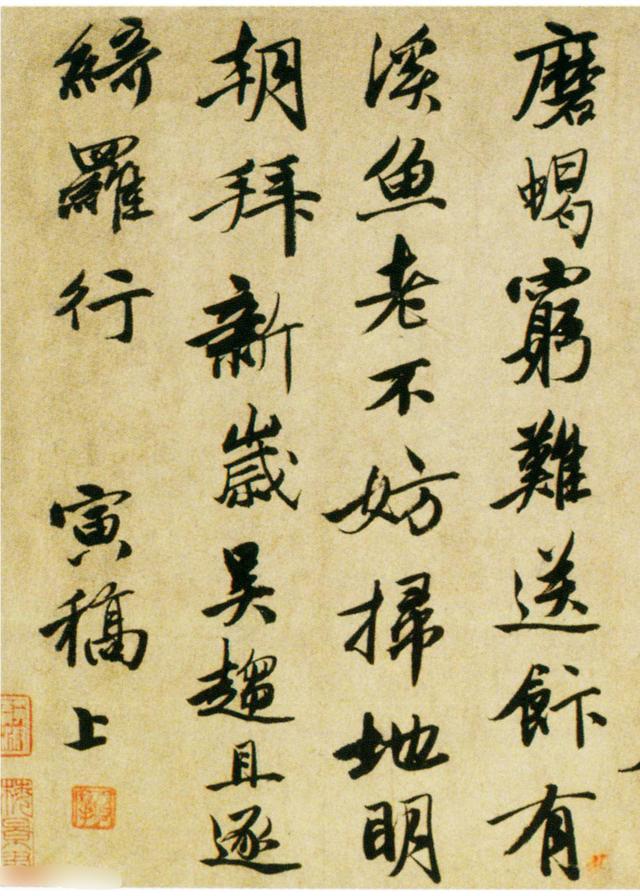 磨蝎窮難送餅有
溪魚老不妨掃地明
朝拜新歲吳趨且逐
綺羅行 寅稿上